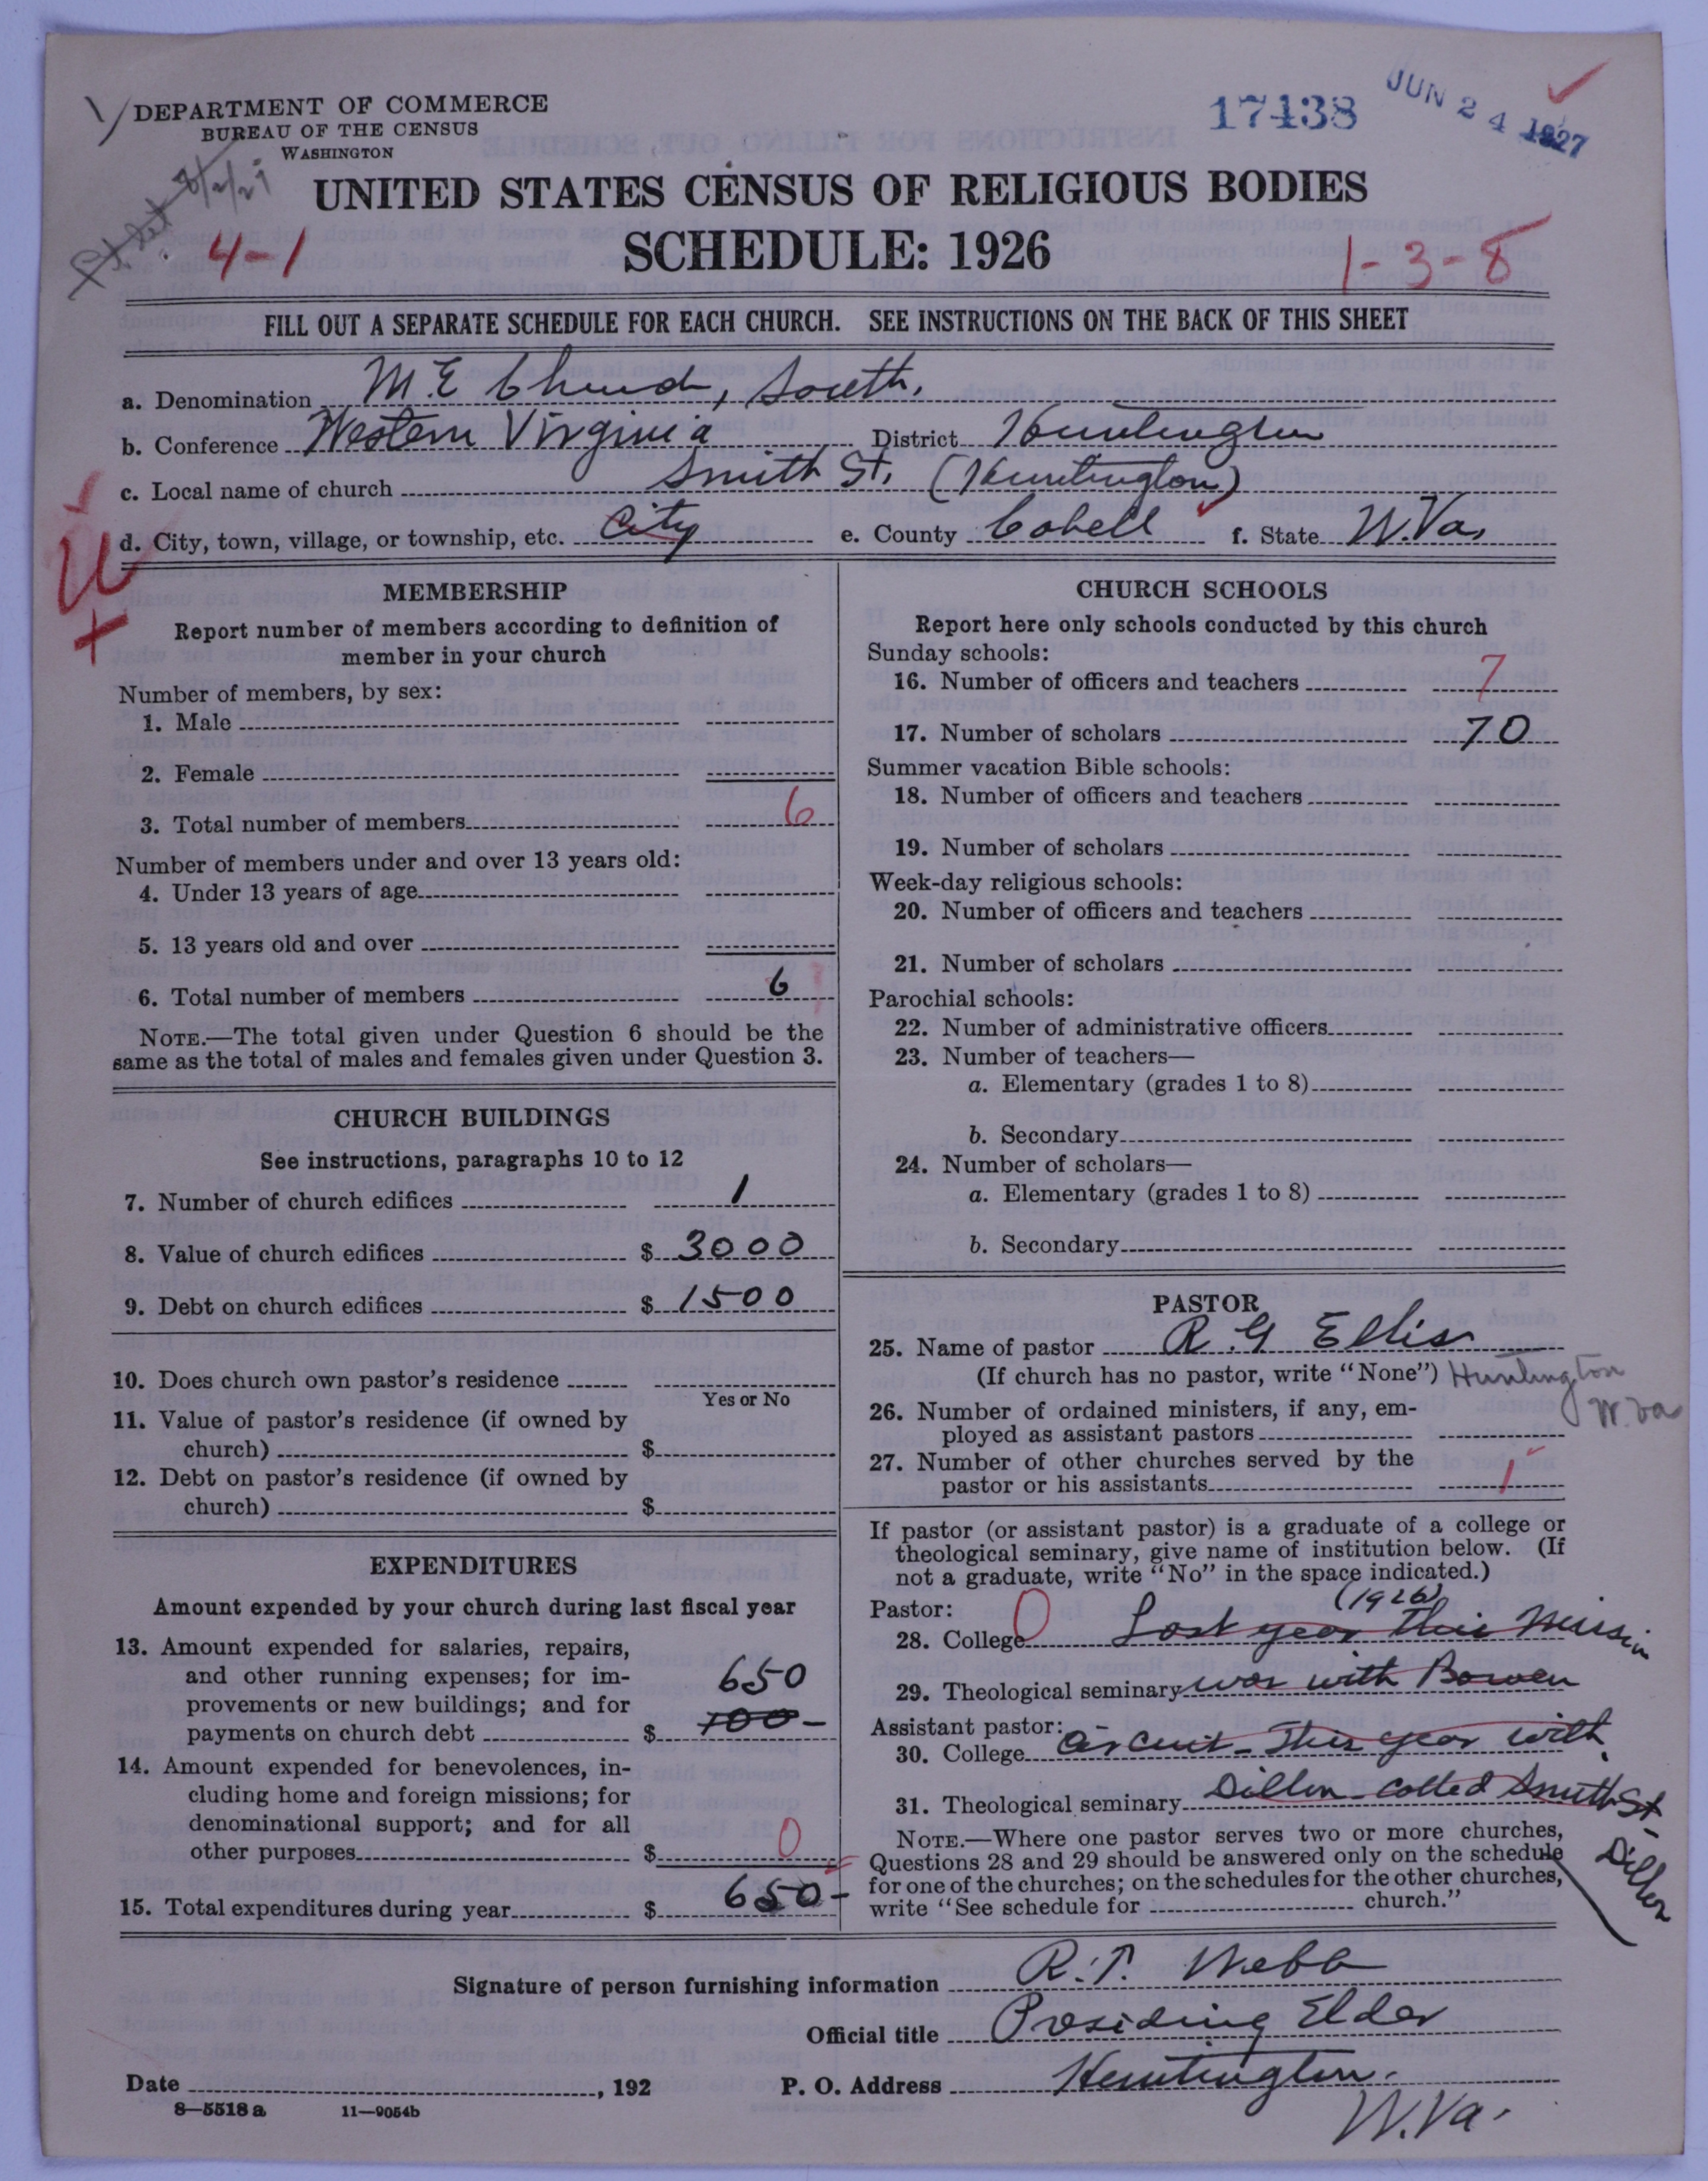 DEPARTMENT OF COMMERCE
BUREAU OF THE CENSUS
WASHINGTON
17438
JUN 24 1927
UNITED STATES CENSUS OF RELIGIOUS BODIES
4-1
SCHEDULE: 1926
1-3-8
FILL OUT A SEPARATE SCHEDULE FOR EACH CHURCH. SEE INSTRUCTIONS ON THE BACK OF THIS SHEET
a. Denomination M.E Church, South,
b. Conference Western Virginia District Huntington
c. Local name of church Smith St. (Huntington)
d. City, town, village, or township, etc. City e. County Cabell f. State W.Va,
MEMBERSHIP
Report number of members according to definition of
member in your church
Number of members, by sex:
1. Male
2. Female
3. Total number of members 6
Number of members under and over 13 years old:
4. Under 13 years of age
5. 13 years old and over
6. Total number of members 6
NOTE.—The total given under Question 6 should be the
same as the total of males and females given under Question 3.
CHURCH BUILDINGS
See instructions, paragraphs 10 to 12
7. Number of church edifices 1
8. Value of church edifices $ 3000
9. Debt on church edifices $ 1500
10. Does church own pastor's residence
Yes or No
11. Value of pastor's residence (if owned by
church) $
12. Debt on pastor's residence (if owned by
church) $
EXPENDITURES
Amount expended by your church during last fiscal year
13. Amount expended for salaries, repairs,
and other running expenses; for im-
provements or new buildings; and for
payments on church debt $ 650
700-
14. Amount expended for benevolences, in-
cluding home and foreign missions; for
denominational support; and for all
other purposes $ 0
15. Total expenditures during year $ 650-
CHURCH SCHOOLS
Report here only schools conducted by this church
Sunday schools:
16. Number of officers and teachers 7
17. Number of scholars 70
Summer vacation Bible schools:
18. Number of officers and teachers
19. Number of scholars
Week-day religious schools:
20. Number of officers and teachers
21. Number of scholars
Parochial schools:
22. Number of administrative officers
23. Number of teachers—
a. Elementary (grades 1 to 8)
b. Secondary
24. Number of scholars—
a. Elementary (grades 1 to 8)
b. Secondary
PASTOR
25. Name of pastor R.G Ellis
(If church has no pastor, write "None") Huntington
W.Va
26. Number of ordained ministers, if any, em-
ployed as assistant pastors
27. Number of other churches served by the
pastor or his assistants 1
If pastor (or assistant pastor) is a graduate of a college or
theological seminary, give name of institution below. (If
not a graduate, write "No" in the space indicated.)
Pastor: 0 (1926)
28. College Last year this mission
29. Theological seminary was with Bowen
Assistant pastor:
30. College circuit - This year with
31. Theological seminary Dillon - called Smith St-
Dillon
NOTE.—Where one pastor serves two or more churches,
Questions 28 and 29 should be answered only on the schedule
for one of the churches; on the schedules for the other churches,
write "See schedule for church."
Signature of person furnishing information R.T. Webb
Official title Presiding Elder
Date , 192 P. O. Address Huntington.
W.Va.
8—5518 a 11—9054b